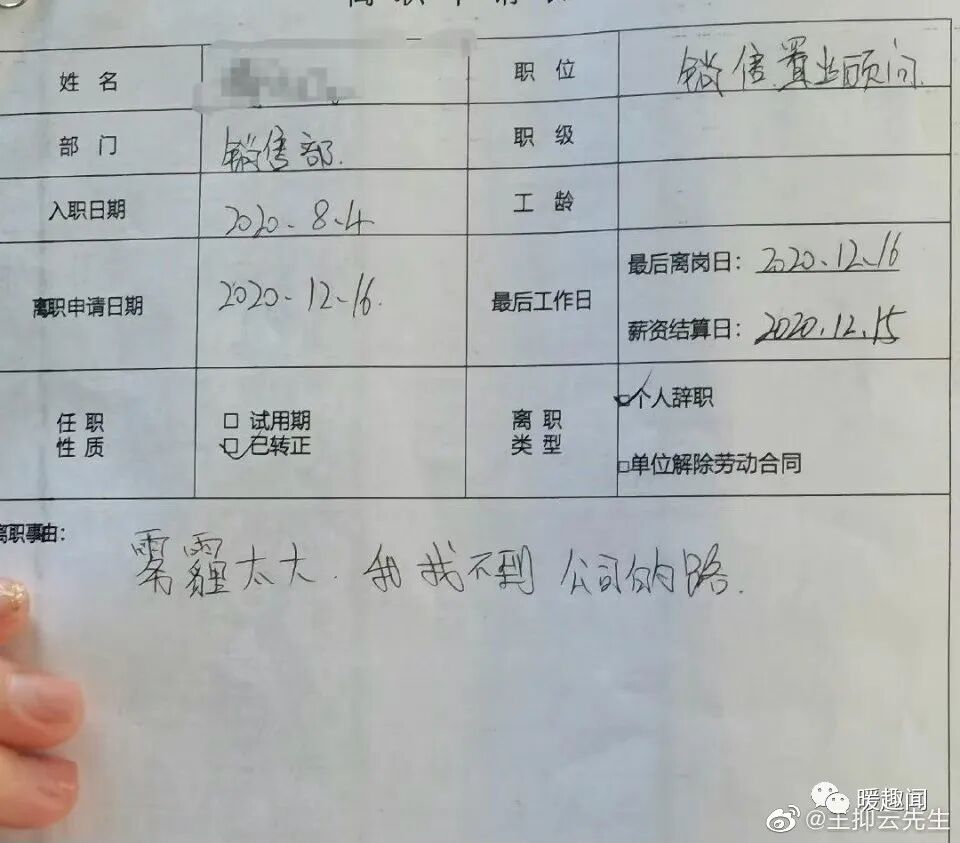 离职申请表
姓名
职位 销售置业顾问
部门 销售部.
职级
入职日期 2020.8.4
工龄
离职申请日期 2020.12.16.
最后工作日 最后离岗日：2020.12.16
薪资结算日：2020.12.15
任职性质 □ 试用期
□ 已转正
离职类型 □个人辞职
□单位解除劳动合同
离职事由：
雾霾太大.我找不到公司的路.
暖趣闻
@王抑云先生